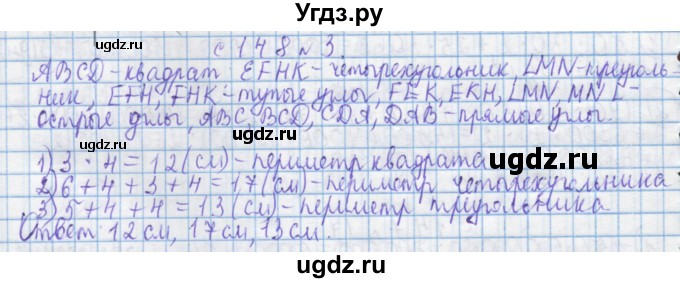 Угдз.ру
с 148 № 3
ABCD-квадрат EFHK-четырехугольник, LMN-треуголь-
ник, EFH, FHK-тупые углы, FEK, EKH, LMN, MNL-
острые углы, ABC, BCD, CDA, DAB-прямые углы.
1) 3 · 4 = 12 (см)-периметр квадрата
2) 6 + 4 + 3 + 4 = 17 (см)-периметр четырехугольника
3) 5 + 4 + 4 = 13 (см)-периметр треугольника
Ответ: 12 см, 17 см, 13 см.
ugdz.ru
ugdz.ru
ugdz.ru
ugdz.ru
ugdz.ru
ugdz.ru